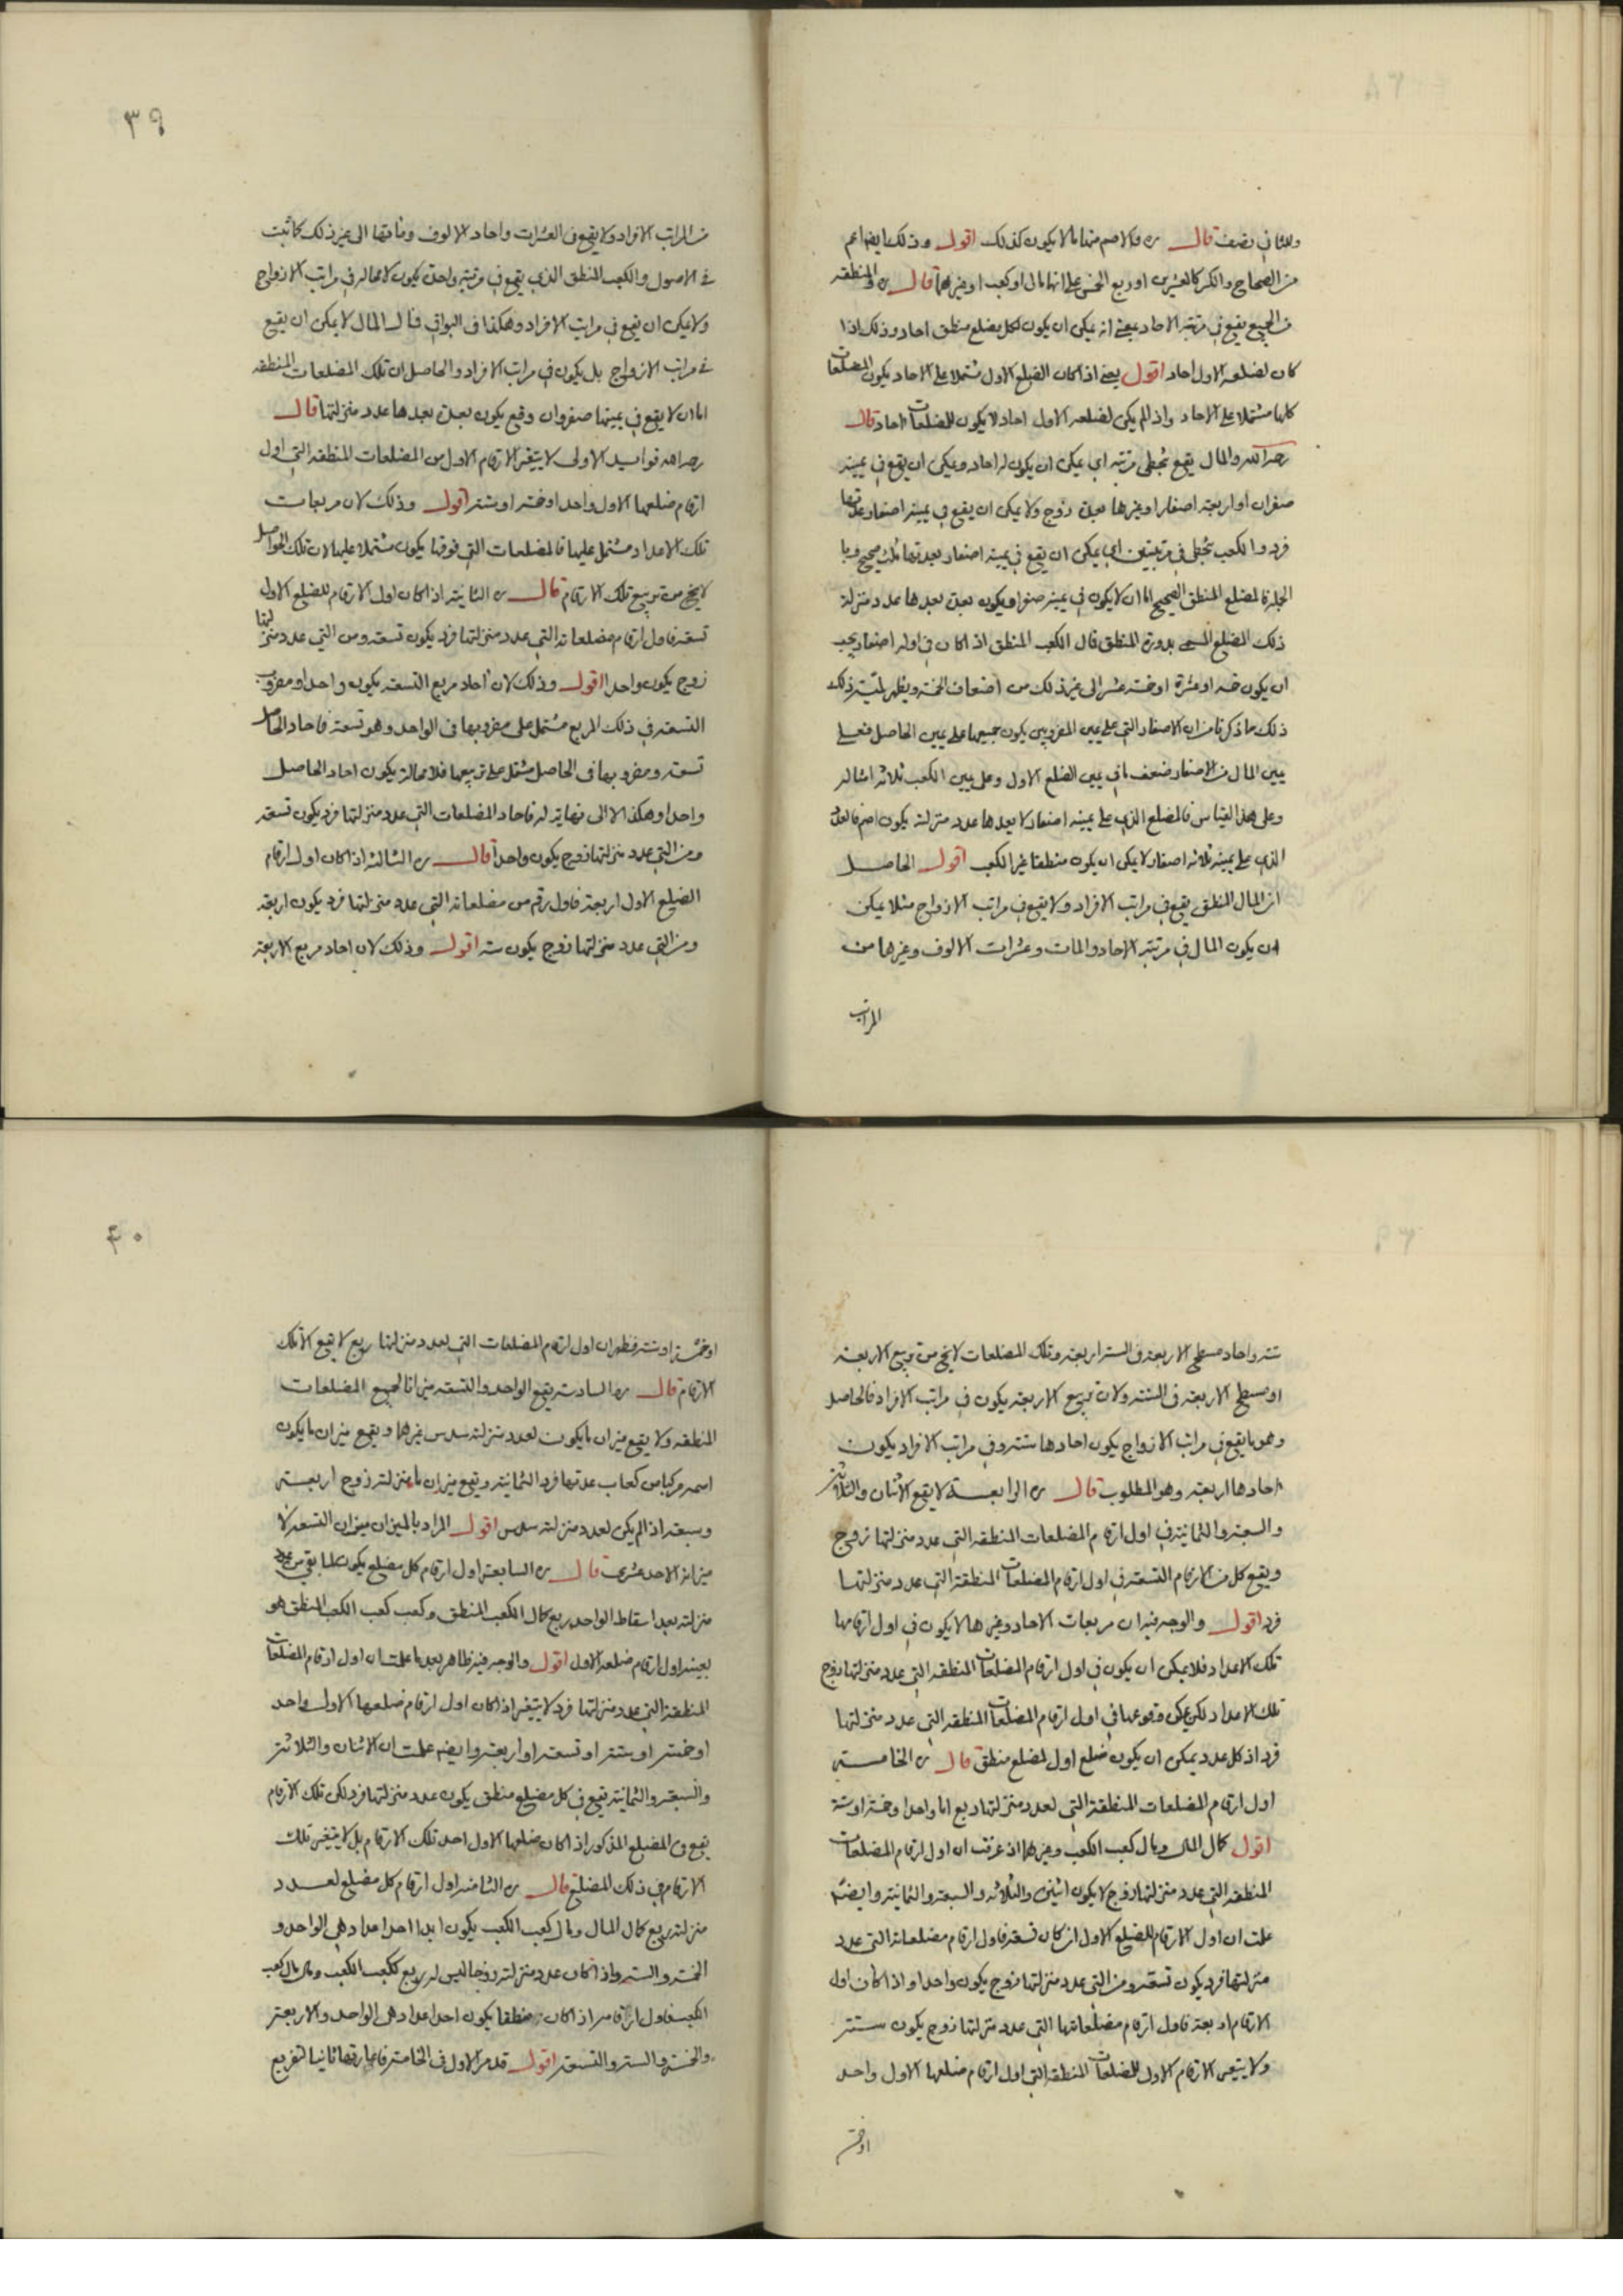 وللثاني نصف قال ره والاصم منها ما لا يكون كذلك اقول وذلك ايضا اعم
من الصحاح والكسر كالعشرين اوربع الخمس على انها مال او كعب او غيرهما قال ره والمنطقه
من الجميع يقع في مرتبة الاحاد يعني انه يمكن ان يكون لكل مضلع منطق احاد وذلك اذا
كان لضلعه الاول احاد اقول يعني اذا كان الضلع الاول مشتملا على الاحاد يكون المضلعات
كلها مشتملا على الاحاد واذا لم يكن لضلعه الاول احاد لا يكون للمضلعات احاد قال
رحمه الله والمال يقع بتخطى مرتبة اي يمكن ان يكون له احاد ويمكن ان يقع في يمينه
صفران او اربعة اصفار او غيرها بعدة زوج ولا يمكن ان يقع في يمينه اصفار عدتها
فرد والكعب بتخطى مرتبتين اي يمكن ان يقع في يمينه اصفار بعدتها ثلث صحيح وبا
الجملة المضلع المنطق الصحيح اما ان لا يكون في يمينه صفر او يكون بعدة بعدها عدد منزلة
ذلك المضلع المسمى بدورة المنطق قال الكعب المنطق اذا كان في اوله اصفار يجب
ان يكون خمسة او عشرة او خمسة عشر الى غير ذلك من اضعاف الخمسة ويظهر لمّية ذلك
ذلك ما ذكرنا من ان الاصفار التي على يمين المضروبين يكون جميعها على يمين الحاصل فعلى
يمين المال من الاصفار ضعف ما في يمين الضلع الاول وعلى يمين الكعب ثلاثة امثاله
وعلى هذا القياس فالمضلع الذي على يمينه اصفار لا يعدها عدد منزلته يكون اصم فالعدد
الذي على يمينه ثلاثة اصفار لا يمكن ان يكون منطقا غير الكعب اقول الحاصل
ان المال المنطق يقع في مراتب الافراد ولا يقع في مراتب الازواج مثلا يمكن
ان يكون المال في مرتبة الاحاد والمات وعشرات الالوف وغيرها من
المراتب
٣٩
من المراتب الافراد ولا يقع في العشرات واحاد الالوف وماتها الى غير ذلك كما ثبت
في الاصول والكعب المنطق الذي يقع في مرتبة واحدة يكون لا محالة في مراتب الازواج
ولا يمكن ان يقع في مراتب الافراد وهكذا في البواقي فمال المال لا يمكن ان يقع
في مراتب الازواج بل يكون في مراتب الافراد والحاصل ان تلك المضلعات المنطقه
اما ان لا يقع في يمينها صفر وان وقع يكون بعدة بعدها عدد منزلتها قال
رحمه الله فوائد الاولى لا يتغير الارقام الاول من المضلعات المنطقه التي اول
ارقام ضلعها الاول واحد او خمسة او ستة اقول وذلك لان مربعات
تلك الاعداد مشتمل عليها فالمضلعات التي فوقها يكون مشتملا عليها لان تلك الحواصل
لا يخرج من تربيع تلك الارقام قال ره الثانية اذا كان اول الارقام للضلع الاول
تسعه فاول ارقام مضلعاته التي عدد منزلتها فرد يكون تسعه ومن التي عدد منزلتها
زوج يكون واحدا اقول وذلك لان احاد مربع التسعه يكون واحدا ومضروب
التسعه في ذلك المربع مشتمل على مضروبها في الواحد وهو تسعة فاحاد الحاصل
تسعة ومضروبها في الحاصل مشتمل على تربيعها فلا محالة يكون احاد الحاصل
واحدا وهكذا الا الى نهاية له فاحاد المضلعات التي عدد منزلتها فرد يكون تسعة
ومن التي عدد منزلتها زوج يكون واحداً قال ره الثالثه اذا كان اول ارقام
الضلع الاول اربعة فاول رقم من مضلعاته التي عدد منزلتها فرد يكون اربعة
ومن التي عدد منزلتها زوج يكون ستة اقول وذلك لان احاد مربع الاربعة
ستة واحاد مسطح الاربعة في الستة اربعة وتلك المضلعات لا يخرج من تربيع الاربعة
او مسطح الاربعة في الستة ولان تربيع الاربعة يكون في مراتب الافراد فالحاصل
وهو ما يقع في مراتب الازواج يكون احادها ستة وفي مراتب الافراد يكون
احادها اربعة وهو المطلوب قال ره الرابعة لا يقع الاثنان والثلاثة
والسبعة والثمانية في اول ارقام المضلعات المنطقه التي عدد منزلتها زوج
ويقع كل من الارقام التسعة في اول ارقام المضلعات المنطقة التي عدد منزلتها
فرد اقول والوجه فيه ان مربعات الاحاد وغيرها لا يكون في اول ارقامها
تلك الاعداد فلا يمكن ان يكون في اول ارقام المضلعات المنطقه التي عدد منزلتها زوج
تلك الاعداد لكن يمكن وقوعها في اول ارقام المضلعات المنطقه التي عدد منزلتها
فرد اذ كل عدد يمكن ان يكون ضلع اول لمضلع منطق قال ره الخامسة
اول ارقام المضلعات المنطقة التي لعدد منزلتها ربع اما واحد او خمسة او ستة
اقول كمال المال ومال كعب الكعب وغيرهما اذ عرفت ان اول ارقام المضلعات
المنطقه التي عدد منزلتها زوج لا يكون اثنين والثلاثه والسبعة والثمانية وايضا
علمت ان اول الارقام للضلع الاول ان كان تسعة فاول ارقام مضلعاته التي عدد
منزلتها فرد يكون تسعة ومن التي عدد منزلتها زوج يكون واحدا واذا كان اول
الارقام اربعة فاول ارقام مضلعاتها التي عدد منزلتها زوج يكون ستة
ولا يتغير الارقام الاول للمضلعات المنطقة التي اول ارقام ضلعها الاول واحد
او خمسة
٤٠
او خمسة او ستة فظهر ان اول ارقام المضلعات التي لعدد منزلتها ربع لا يقع الا تلك
الارقام قال ره السادسة يقع الواحد والتسعة ميزانا لجميع المضلعات
المنطقه ولا يقع ميزان ما يكون لعدد منزلته سدس غيرهما ويقع ميزان ما يكون
اسمه مركبا من كعاب عدتها فرد الثمانية ويقع ميزان ما منزلته زوج اربعة
وسبعة اذا لم يكن لعدد منزلته سدس اقول المراد بالميزان ميزان التسعة لا
ميزان الاحد عشرى قال ره السابعة اول ارقام كل مضلع يكون لما بقي من عدد
منزلته بعد اسقاط الواحد ربع كمال الكعب المنطق وكعب كعب الكعب المنطق هو
بعينه اول ارقام ضلعه الاول اقول والوجه فيه ظاهر بعد ما علمت ان اول ارقام المضلعات
المنطقة التي عدد منزلتها فرد لا يتغير اذا كان اول ارقام ضلعها الاول واحد
او خمسة او ستة او تسعة او اربعة وايضا علمت ان الاثنان والثلاثة
والسبعة والثمانية يقع في كل مضلع منطق يكون عدد منزلتها فرد لكن تلك الارقام
يقع في المضلع المذكور اذا كان ضلعها الاول احد تلك الارقام بل لا يتغير تلك
الارقام في ذلك المضلع قال ره الثامنة اول ارقام كل مضلع لعدد
منزلته ربع كمال المال ومال كعب الكعب يكون ابدا احد اعداد وهي الواحد و
الخمسة والستة واذا كان عدد منزلته زوجا ليس له ربع ككعب الكعب ومال مال كعب
الكعب فاول ارقامه اذا كان منطقا يكون احد اعداد وهي الواحد والاربعة
والخمسة والستة والتسعة اقول قد مر الاول في الخامسة فاعادتها ثانيا لتفريع